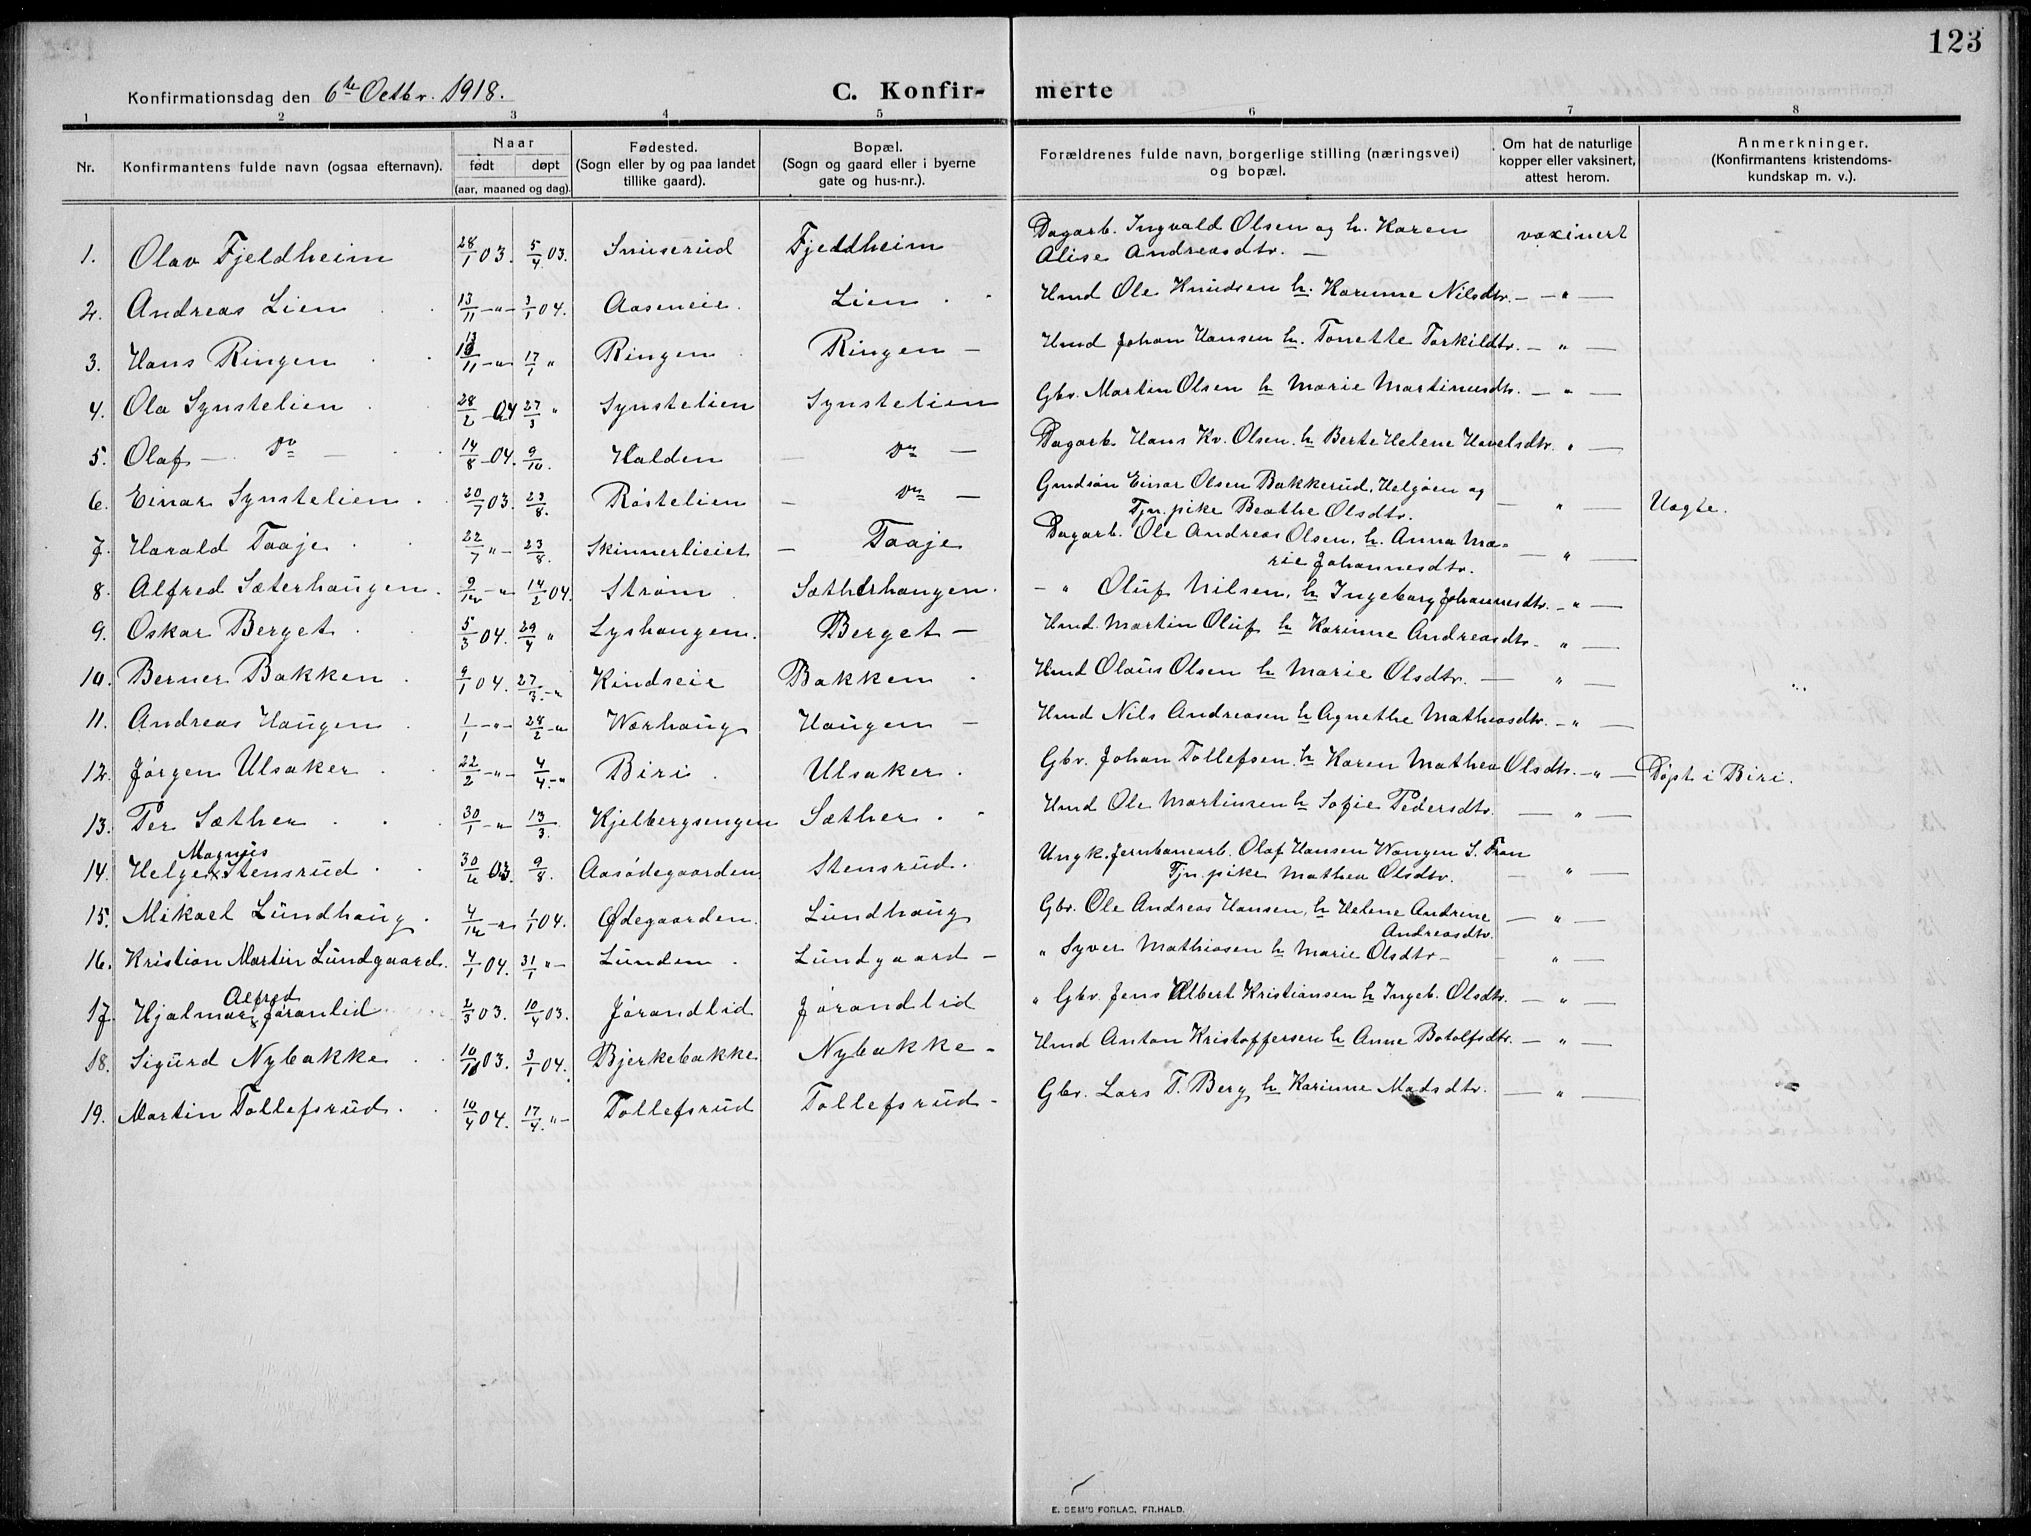 123
Konfirmationsdag den 6te Octbr. 1918.
C. Konfir-
merte
1 2 3 4 5 6 7 8
Nr.
Konfirmantens fulde navn (ogsaa efternavn).
Naar
født døpt
(aar, maaned og dag).
Fødested.
(Sogn eller by og paa landet
tillike gaard).
Bopæl.
(Sogn og gaard eller i byerne
gate og hus-nr.).
Forældrenes fulde navn, borgerlige stilling (næringsvei)
og bopæl.
Om hat de naturlige
kopper eller vaksinert,
attest herom.
Anmerkninger.
(Konfirmantens kristendoms-
kundskap m. v.).
1. Olav Fjeldheim 28/1 03. 5/4 03. Sniiserud Fjeldheim Dagarb. Ingvald Olsen og h. Karen vaxinert
Alise Andreasdtr. —
2. Andreas Lien 13/11 —"— 3/1 04. Aaseneie. Lien Hmd Ole Knudsen h. Karinne Nilsdtr. — " —
3. Hans Ringen 13/11 —"— 17/1 " Ringen Ringen — Hmd Johan Hansen h. Tonette Torkildtr. — " —
4. Ola Synstelien 28/2 — 04 27/3 " Synstelien Synstelien Gbr. Martin Olsen h Marie Martinusdtr. — " —
5. Olaf — do — 14/8 — 04. 9/10. Halden — do — Dagarb. Hans Kr. Olsen. h Berte Helene Havelsdtr. " —
6. Einar Synstelien 20/7 03. 23/8. Røstelien — do — Gmdsøn Einar Olsen Bakkerud, Helgøen og — " — Uagte.
Tjn. pike Beathe Olsdtr.
7. Harald Taaje 22/7 "— 23/8. Skinnerlieiet — Taaje Dagarb. Ole Andreas Olsen, h. Anna Ma= — " —
rie Johannesdtr.
8. Alfred Sæterhaugen. 9/12 —"— 14/2 04. Strøm Sætherhaugen. — " Oluf Nilsen, h Ingeborg Johannesdtr. — " —
9. Oskar Berget 5/3 04. 29/4 " Lyshaugen. Berget — Hmd. Martin Oluf h Karinne Andreasdtr. " —
10. Berner Bakken 9/1 04. 27/3. —" Kindseie Bakken Hmd Olaus Olsen h Marie Olsdtr. — " —
11. Andreas Haugen 1/1 —"— 28/2 —" Worhaug Haugen — Hmd Nils Andreasen h Agnethe Mathiasdtr. — " —
12. Jørgen Ulsaker 22/2 —"— 4/4. —" Biri Ulsaker. Gbr. Johan Tollefsen. h Karen Mathea Olsdtr. — " — Døpt i Biri.
13. Per Sæther 30/1 —" 13/3. Kjelbergsengen Sæther. Hmd Ole Martinsen h Sofie Pedersdtr. — " —
Magnus
14. Helge x Stensrud 9/8. Aasødegaarden Stensrud. Ungk. Jernbanearb. Olaf Hansen Wangen S. Fron — " —
Tjn. pike Mathea Olsdtr.
15. Mikael Lundhaug. 4/12 —" 1/1 04. Ødegaarden. Lundhaug Gbr. Ole Andreas Hansen, h Helene Andrine — " —
Andreasdtr.
16. Kristian Martin Lundgaard. 4/1 04. 31/1 "— Lunden. Lundgaard — " Syver Mathiasen h Marie Olsdtr — " —
Alfred
17. Hjalmar x Jøranlid 2/3 03. 10/4 03. Jørandlid Jørandlid " Gbr. Jens Albert Kristiansen h Ingeb. Olsdtr. — " —
18. Sigurd Nybakke 03. 3/1 04. Bjerkebakke Nybakke — Hmd Anton Kristoffersen h Anne Botolfsdtr. — " —
19. Martin Tollefsrud. 10/4 04. 17/4. "— Tollefsrud Tollefsrud — Gbr. Lars T. Berg h Karinne Madsdtr. — " —
E. SEM'S FORLAG, FR.HALD.